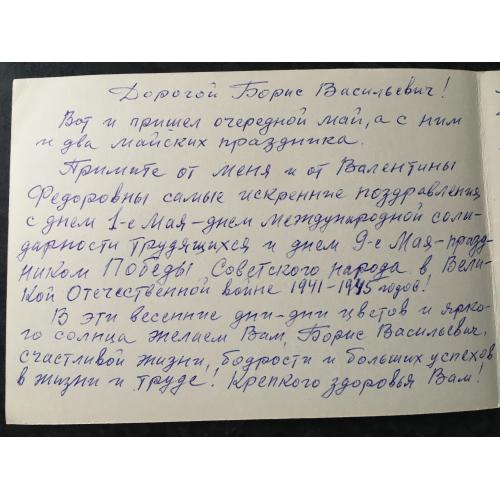 Дорогой Борис Васильевич!
Вот и пришел очередной май, а с ним
и два майских праздника.
Примите от меня и от Валентины
Федоровны самые искренние поздравления
с днем 1-е Мая-днем международной соли-
дарности трудящихся и днем 9-е Мая-празд-
ником Победы Советского народа в Вели-
кой Отечественной войне 1941-1945 годов!
В эти весенние дни-дни цветов и ярко-
го солнца желаем Вам, Борис Васильевич,
счастливой жизни, бодрости и больших успехов
в жизни и труде! Крепкого здоровья Вам!